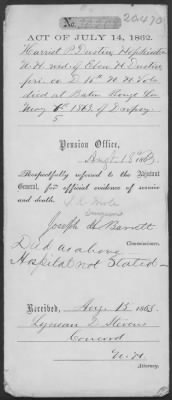 No. 20470
ACT OF JULY 14, 1862.
Harriet P. Dustin, Hopkinton
N.H. wid. of Eben H. Dustin
pri. Co. D 16th N.H. Vols
died at Baton Rouge La
May 1863 of Dropsy.
5
Pension Office,
Augt 13 1863.
Respectfully referred to the Adjutant
General, for official evidence of service
and death.
Surgeons
Joseph H. Barrett
Commissioner.
Died as above
Hospital not Stated —
Received, Aug. 13, 1863.
Lyman D. Stevens
Concord
N.H.
Attorney.